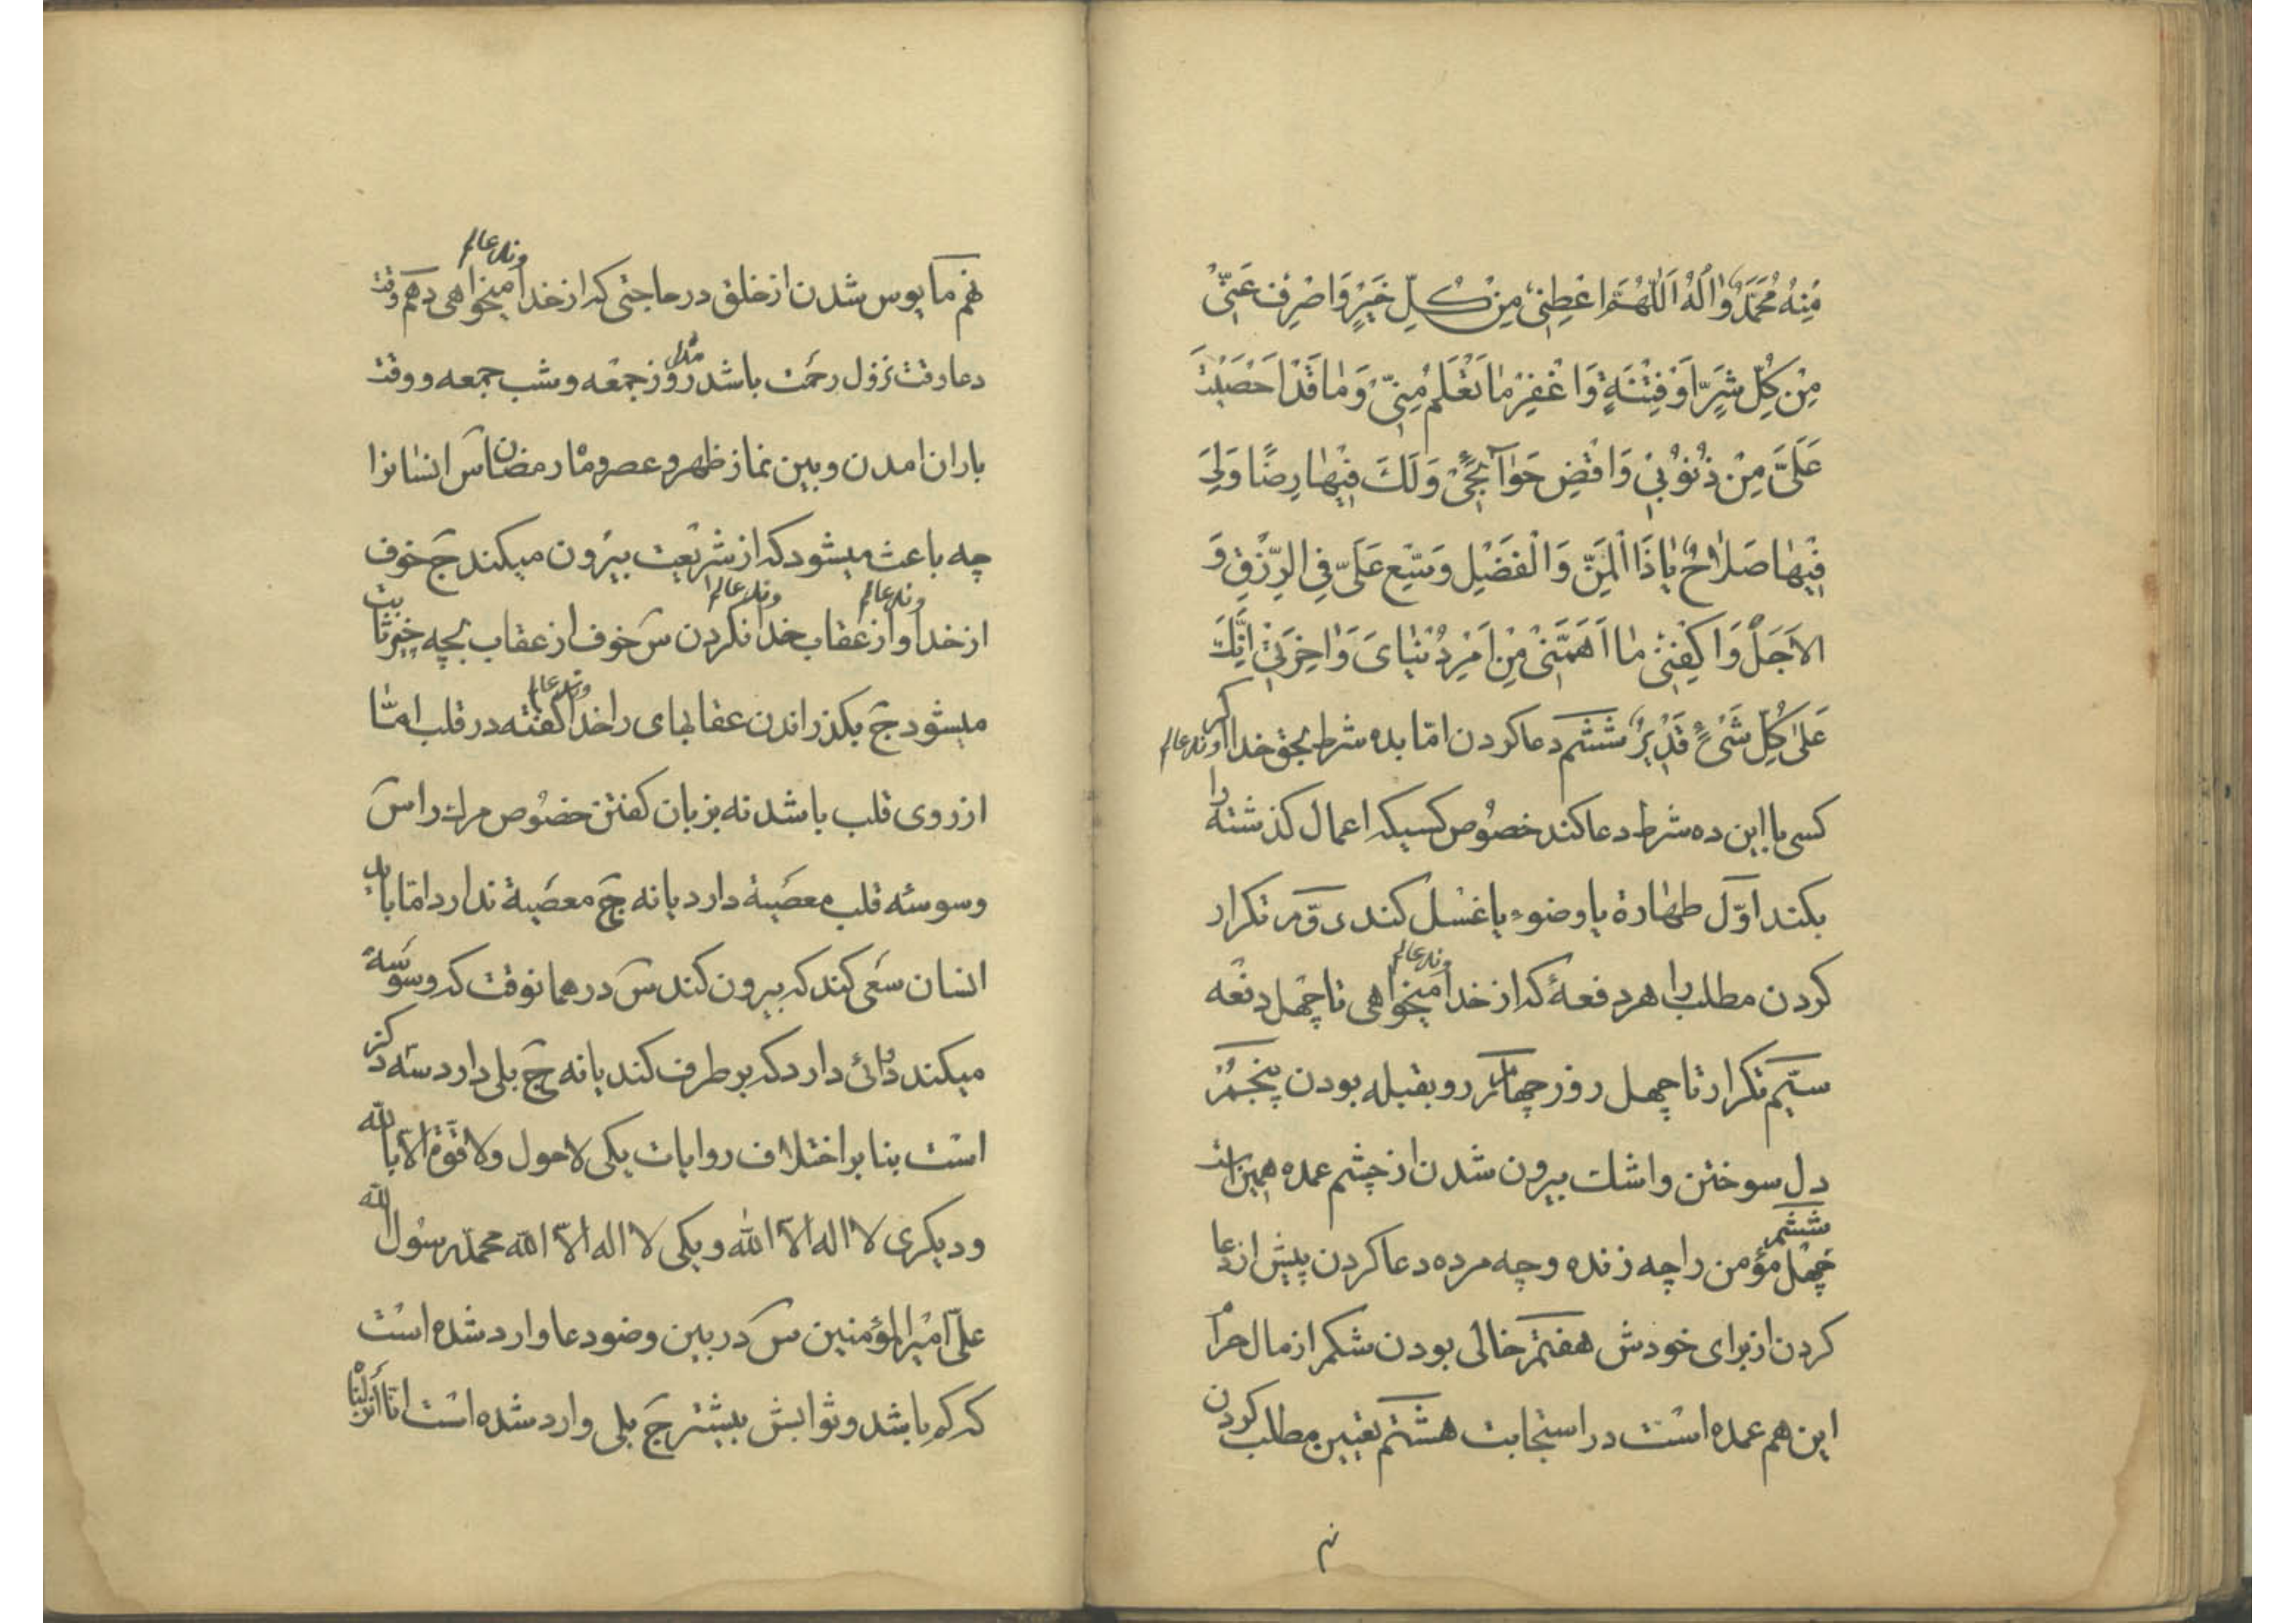 مِنْهُ مُحَمَّدٌ وَاٰلُهُ اَللّٰهُمَّ اعْطِنِيْ مِنْ كُلِّ خَيْرٍ وَاصْرِفْ عَنِّيْ
مِنْ كُلِّ شَرٍّ اَوْ فِتْنَةٍ وَاغْفِرْ مٰا تَعْلَمُ مِنِّيْ وَمٰا قَدْ اَحْصَيْتَ
عَلَيَّ مِنْ ذُنُوْبِيْ وَاقْضِ حَوٰآئِجِيْ وَلَكَ فِيْهٰا رِضًا وَلِيَ
فِيْهٰا صَلٰاحٌ يٰا ذَا الْمَنِّ وَالْفَضْلِ وَسِّعْ عَلَيَّ فِي الرِّزْقِ وَ
الاَجَلِ وَاكْفِنِيْ مٰا اَهَمَّنِيْ مِنْ اَمْرِ دُنْيٰايَ وَاٰخِرَتِيْ اِنَّكَ
عَلىٰ كُلِّ شَيْءٍ قَدِيْرٌ ششم دعا كردن امّا بده شرط بحق خداوند عالم اكر
كسى با اين ده شرط دعا كند خصوص كسيكه اعمال كذشته را
بكند اوّل طهٰارة يا وضوء يا غسل كند دوّم تكرار
كردن مطلب را هر دفعهٔ كه از خداوند عالم ميخواهى تا چهل دفعه
سيّم تكرار تا چهل روز چهارم رو بقبله بودن پنجم
دل سوختن و اشك بيرون شدن از چشم عمده همين است
ششم چهل مؤمن را چه زنده و چه مرده دعا كردن پيش از دعا
كردن از براى خودش هفتم خالى بودن شكم از مال حرام
اين هم عمده است در استجابت هشتم تعيين مطلب كردن
نهم
نهم مايوس شدن از خلق در حاجتى كه از خداوند عالم ميخواهى دهم وقت
دعا وقت نزول رحمت باشد مثل روز جمعه و شب جمعه و وقت
باران امدن و بين نماز ظهر و عصر و ماه رمضان س انسٰانرا
چه باعث ميشود كه از شريعت بيرون ميكند ج خوف
از خداوند عالم و از عقاب خداوند عالم نكردن س خوف از عقاب بچه چيز ثابت
ميشود ج بكذراندن عقابهاى را خداوند عالم كفته در قلب امّا
از روى قلب باشد نه بزبان كفتن خصوص مرك را س
وسوسه قلب معصية دارد يا نه ج معصية ندارد امّا بايد
انسان سعى كند كه بيرون كند س در همانوقت كه وسوسة
ميكند دوائى دارد كه بر طرف كند يا نه ج بلى دارد سه ذكر
است بنا بر اختلاف روايات يكى لا حول ولا قوّة الّا بالله
و ديكرى لا اله الّا الله و يكى لا اله الّا الله محمّد رسول الله
علىّ امير المؤمنين س در بين وضو دعا وارد شده است
كه كم باشد و ثوابش بيشتر ج بلى وارد شده است انّا أنزلْنٰا